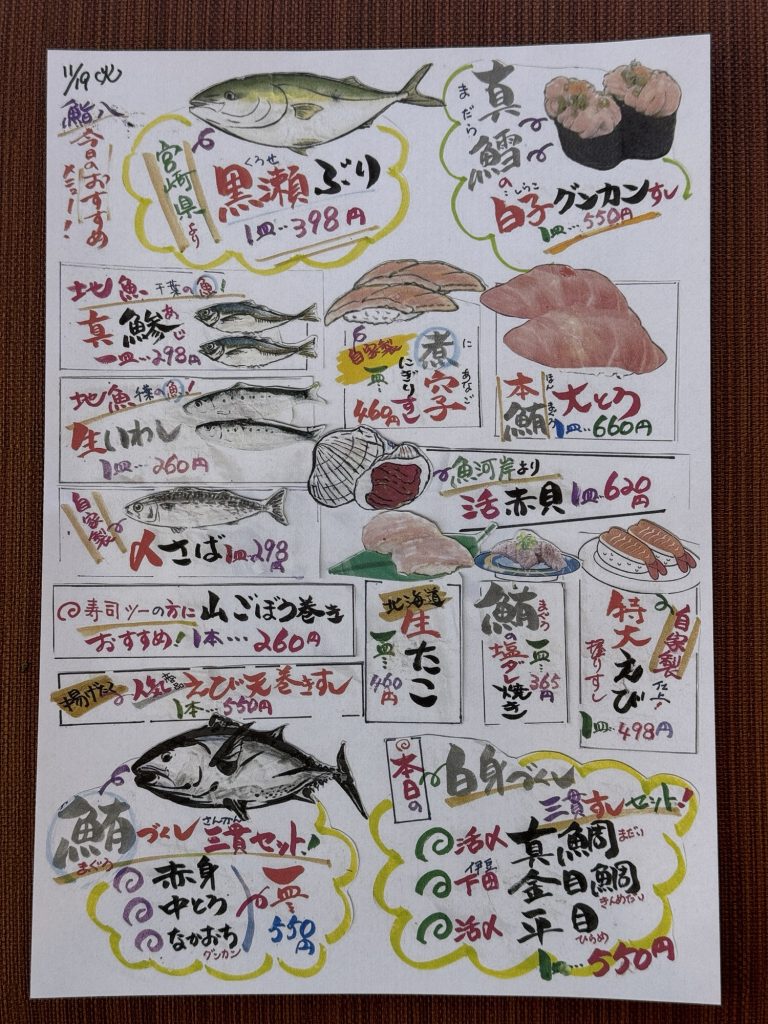 11/19 火
鮨八
今日のおすすめ
メニュー!
宮崎県より
くろせ
黒瀬ぶり
1皿…398円
まだら
真鱈の
しらこ
白子グンカンすし
1皿…550円
地魚 千葉の魚!
真鯵
あじ
一皿…298円
自家製
煮穴子
に あなご
にぎりすし
一皿…
460円
本鮪
ほんまぐろ
大とろ
1皿…660円
地魚 千葉の魚!
生いわし
1皿…260円
魚河岸より
活赤貝 1皿…620円
自家製
〆さば 1皿…298円
寿司ツーの方に
おすすめ!
山ごぼう巻き
1本…260円
北海道
生たこ
一皿…
460円
鮪
まぐろ
の塩ダレ焼き
一皿…
365円
自家製
仕上げ
特大えび
握りすし
1皿…498円
揚げたて
人気商品
えび天巻きすし
1本…550円
鮪づくし
まぐろ
さんかん
三貫セット!
赤身
中とろ
なかおち
グンカン
一皿…
550円
本日の
白身づくし
三貫すしセット!
活〆 真鯛 まだい
伊豆
下田 金目鯛 きんめだい
活〆 平目
ひらめ
1皿…550円